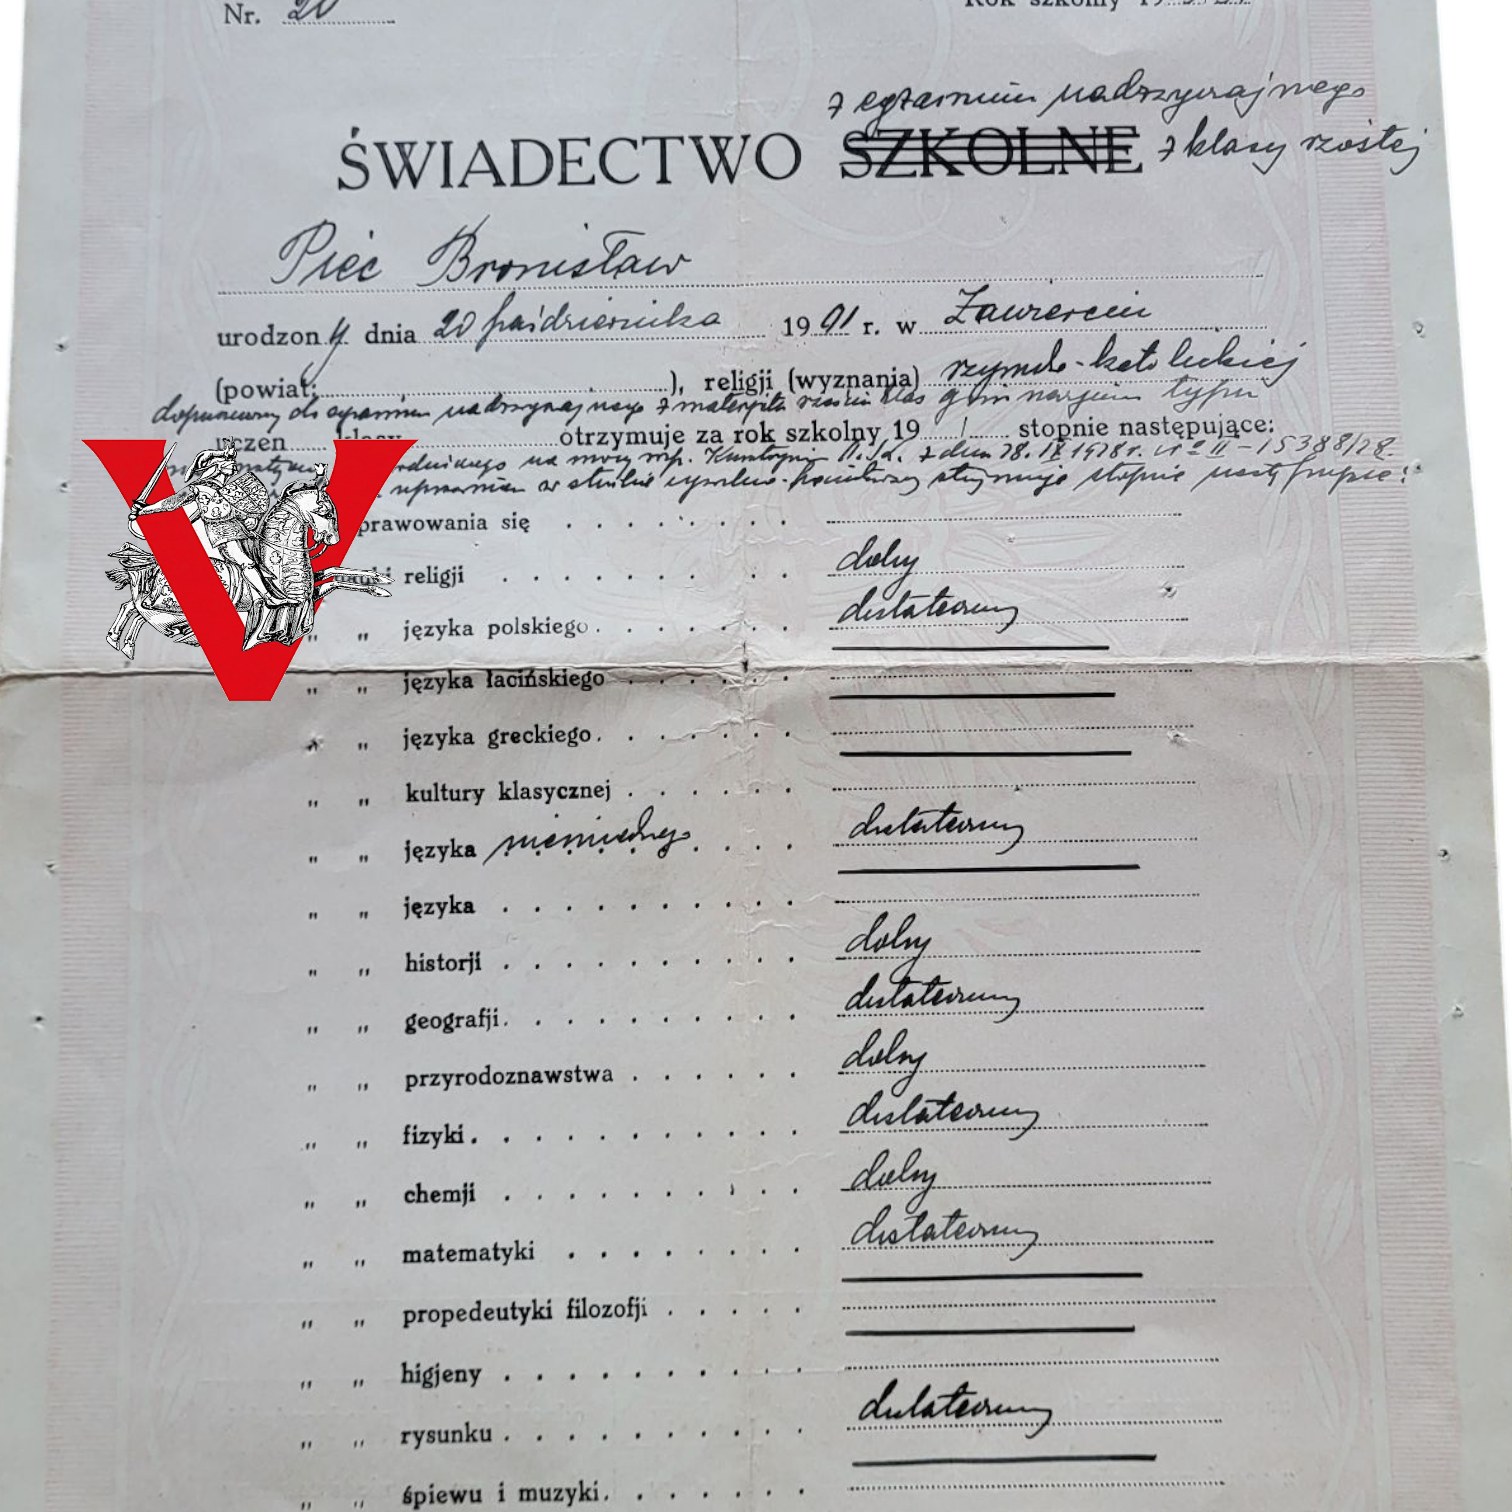 Nr. 20 Rok szkolny 19
z egzaminu nadzwyczajnego
ŚWIADECTWO SZKOLNE z klasy szóstej
Pieć Bronisław
urodzony dnia 20 października 1901 r. w Zawierciu
(powiat: ), religji (wyznania) rzymsko-katolickiej
dopuszczony do egzaminu nadzwyczajnego z materjału sześciu klas gimnazjum typu
uczeń klasy otrzymuje za rok szkolny 19 stopnie następujące:
na mocy rozp. Kuratorjum z dnia 28. IX 1928 r. No II-15388/28.
otrzymuje stopnie następujące:
prawowania się
nauki religji dobry
" " języka polskiego dostateczny
" " języka łacińskiego
" " języka greckiego
" " kultury klasycznej
" " języka niemieckiego dostateczny
" " języka
" " historji dobry
" " geografji dostateczny
" " przyrodoznawstwa dobry
" " fizyki dostateczny
" " chemji dobry
" " matematyki dostateczny
" " propedeutyki filozofji
" " higjeny
" " rysunku dostateczny
" " śpiewu i muzyki
V